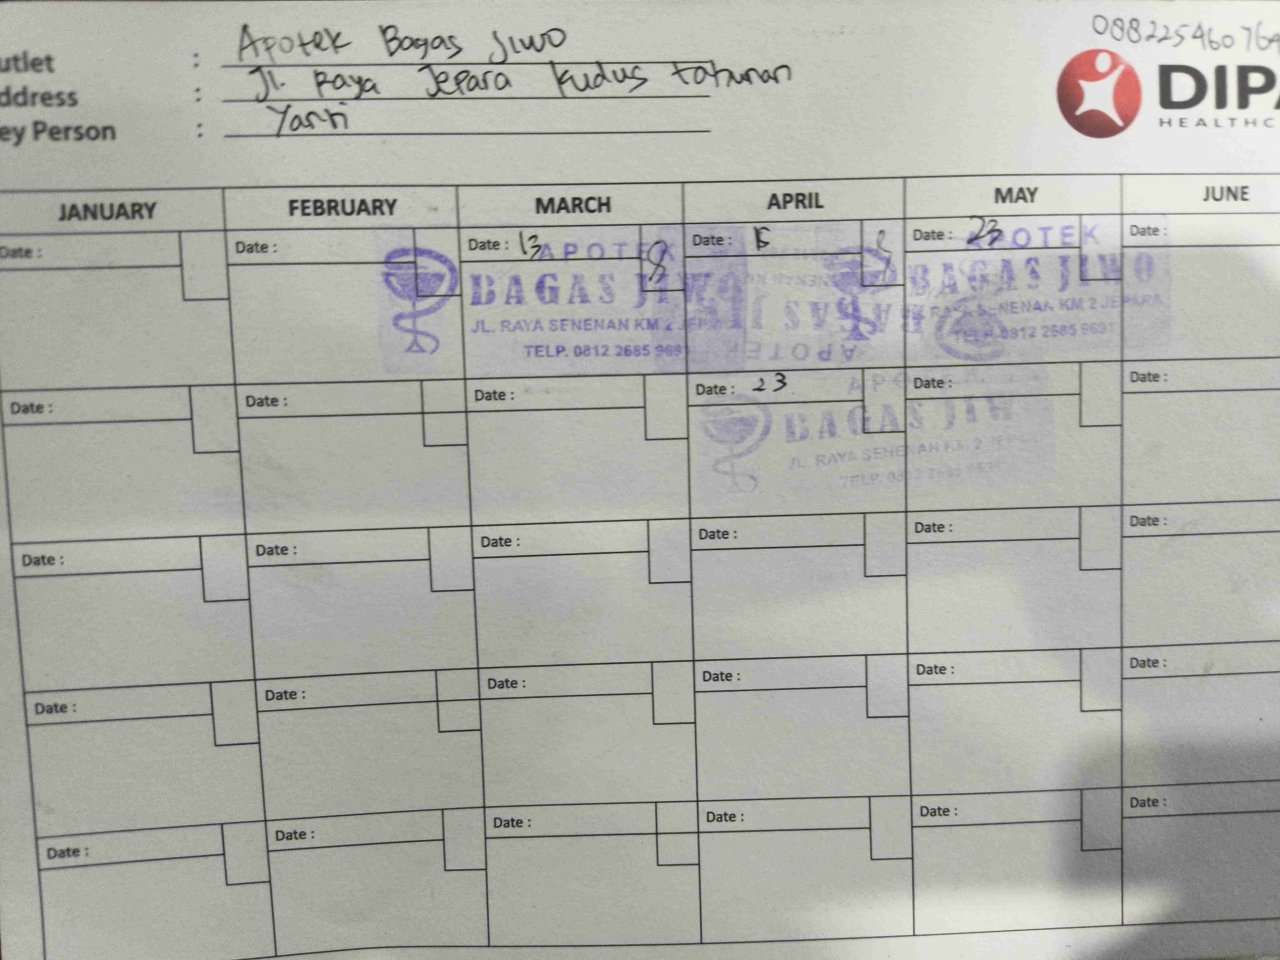 088225460764
utlet : Apotek Bagas Jiwo
ddress : Jl. Raya Jepara Kudus tahunan
ey Person : Yanti
DIPA
HEALTHC
JANUARY FEBRUARY MARCH APRIL MAY JUNE
Date : Date : Date : 13 Date : 15 Date : 23 Date :
APOTEK
BAGAS JIWO
JL. RAYA SENENAN KM 2 JEPARA
TELP. 0812 2685 9691
APOTEK
BAGAS JIWO
APOTEK
BAGAS JIWO
RAYA SENENAN KM 2 JEPARA
TELP. 0812 2685 9691
Date : Date : Date : Date : 23 Date : Date :
APOTEK
BAGAS JIW
JL. RAYA SENENAN KM. 2 JEPARA
TELP. 0812 2685
Date : Date : Date : Date : Date : Date :
Date : Date : Date : Date : Date : Date :
Date : Date : Date : Date : Date : Date :